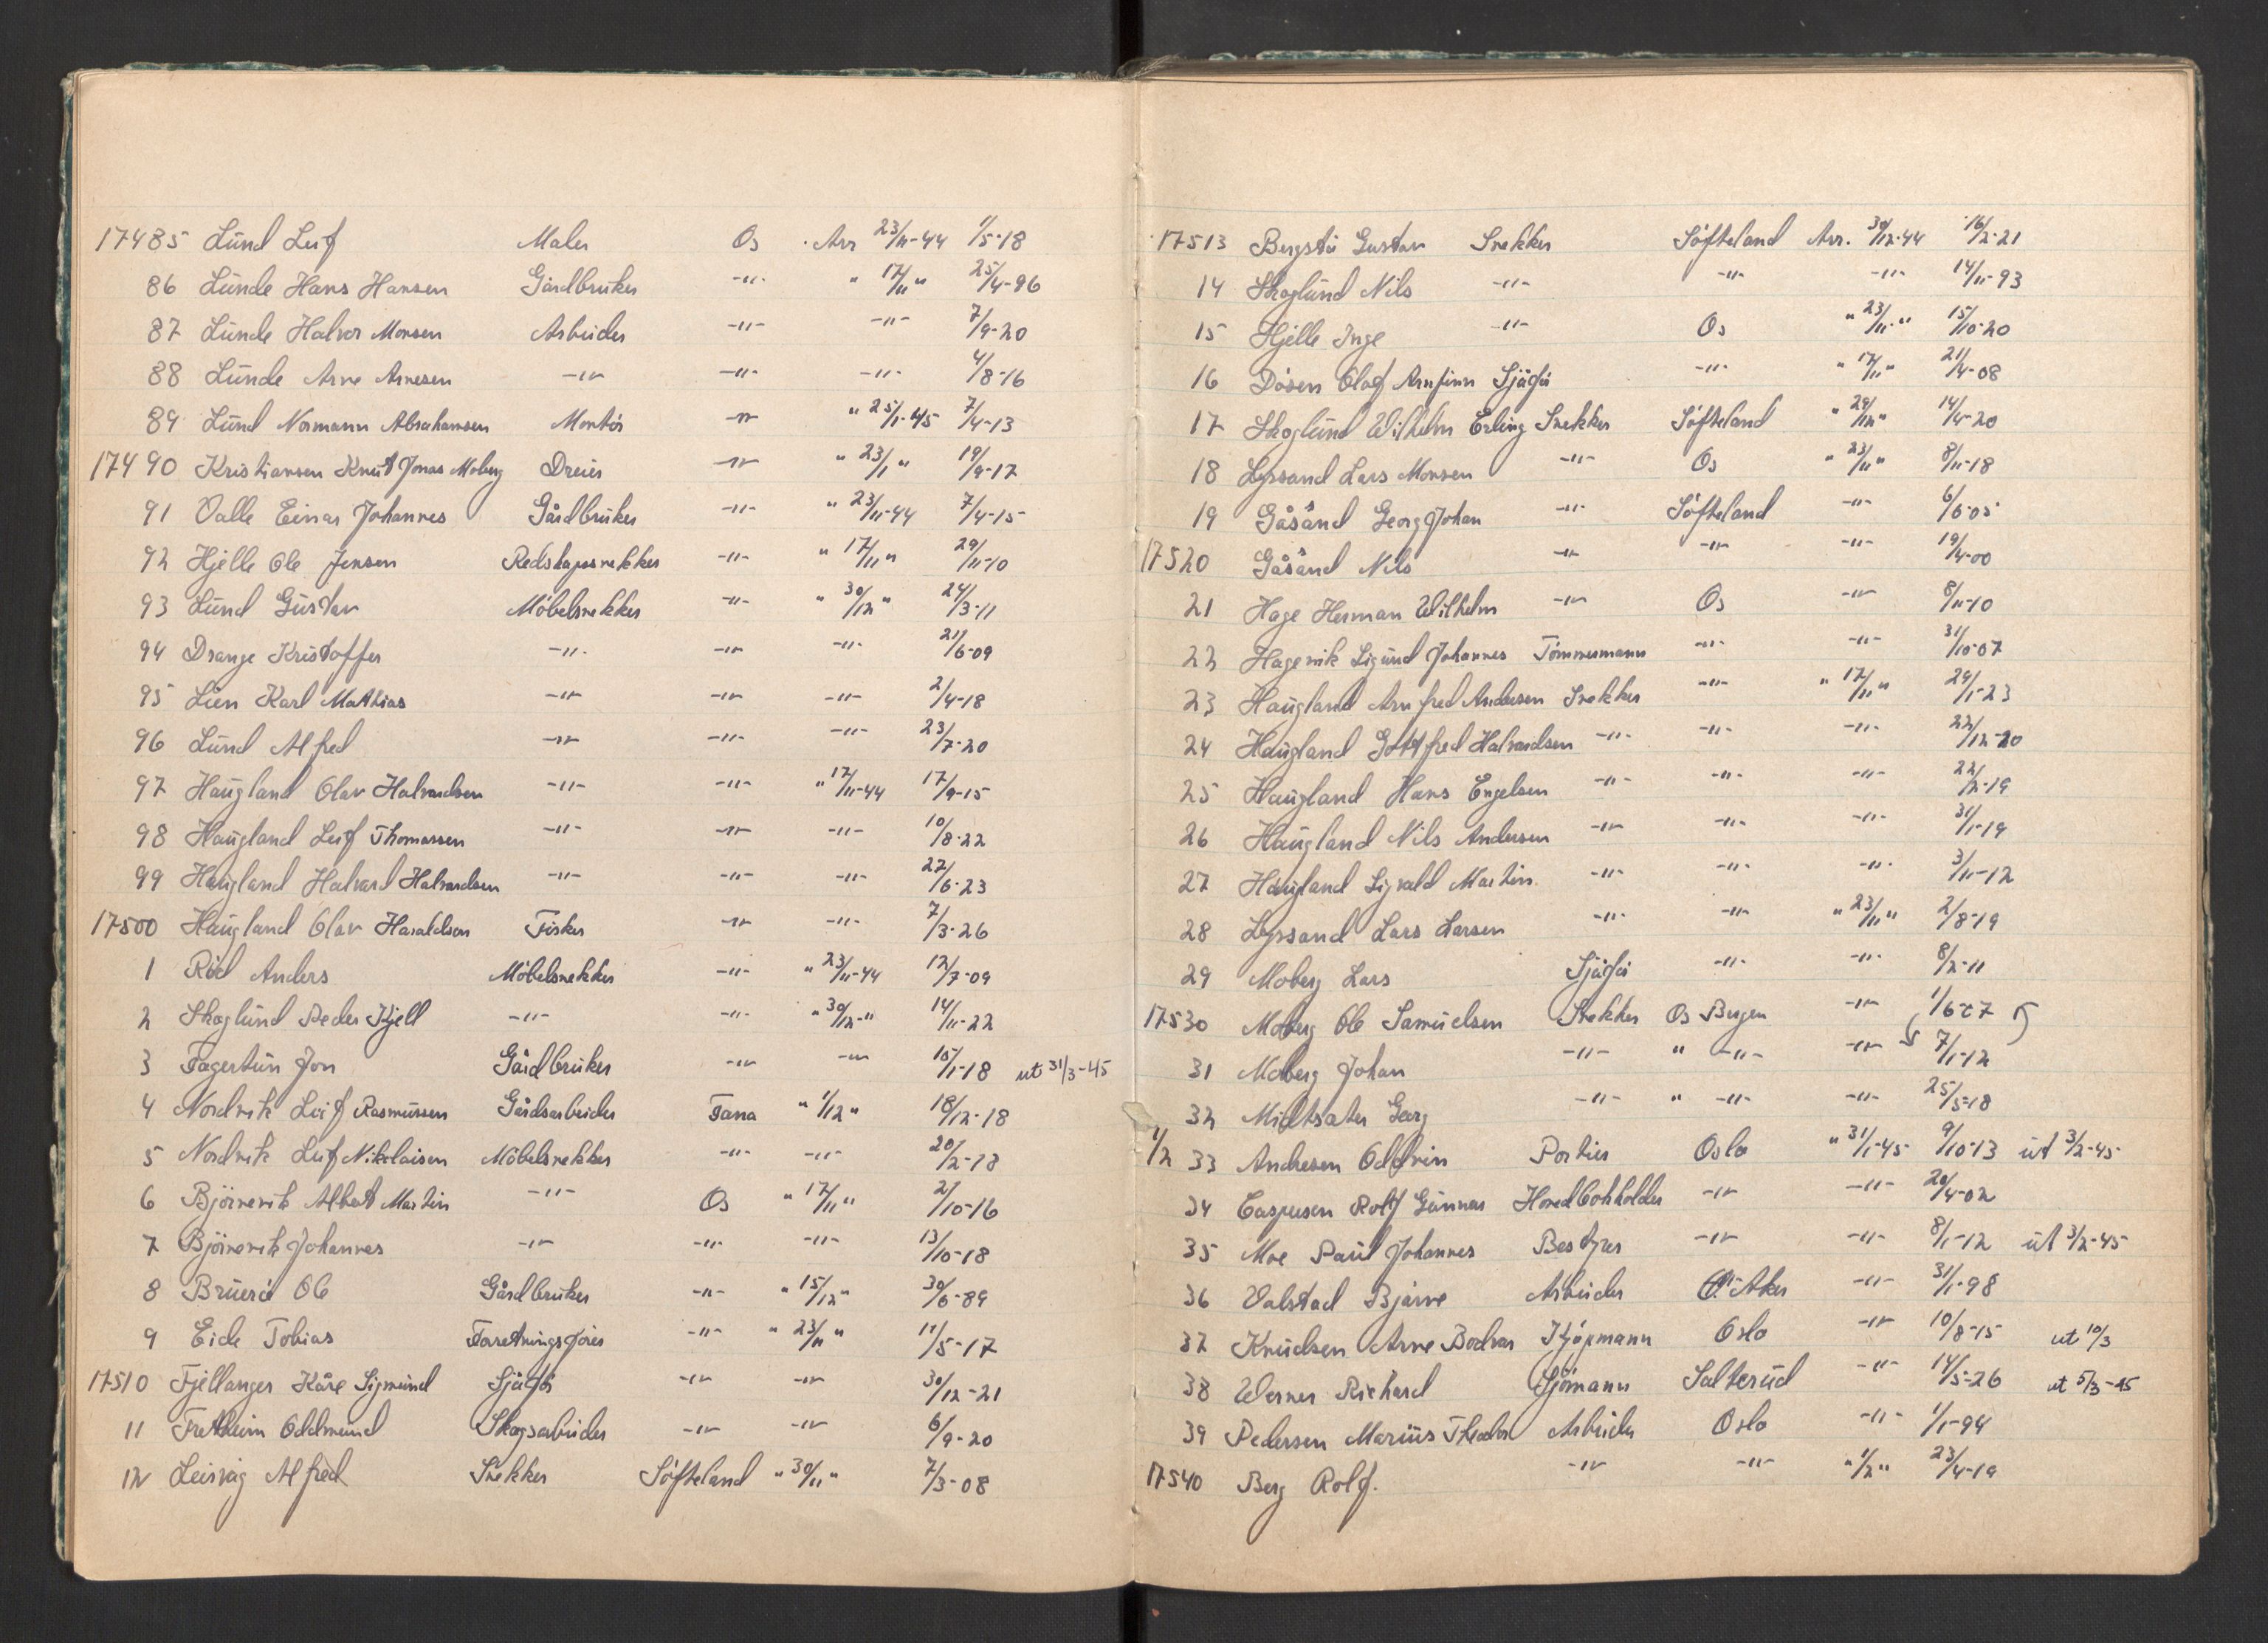 17485 Lund Leif Maler Os Arr 23/11-44 1/5-18
86 Lunde Hans Hansen Gårdbruker -"- " 17/11 " 25/4-96
87 Lunde Halvor Monsen Arbeider -"- -"- 7/9-20
88 Lunde Arne Arnesen -"- -"- -"- 4/8-16
89 Lund Normann Abrahamsen Montör -"- " 25/1-45 7/4-13
17490 Kristiansen Knut Jonas Moberg Dreier -"- " 23/1 " 19/9-17
91 Valle Einar Johannes Gårdbruker -"- " 23/11-44 7/4-15
92 Hjelle Ole Jensen Redskapssnekker -"- " 17/11 " 29/11-10
93 Lund Gustav Möbelsnekker -"- " 30/12 " 24/3-11
94 Drange Kristoffer -"- -"- -"- 21/6-09
95 Lien Karl Mathias -"- -"- -"- 2/4-18
96 Lund Alfred -"- -"- -"- 23/7-20
97 Haugland Olav Halvardsen -"- -"- " 17/11-44 17/9-15
98 Haugland Leif Thomassen -"- -"- -"- 10/8-22
99 Haugland Halvard Halvardsen -"- -"- -"- 27/6-23
17500 Haugland Olav Haraldson Fisker -"- -"- 7/3-26
1 Röd Anders Möbelsnekker -"- " 23/11-44 12/7-09
2 Skoglund Peder Kjell -"- -"- " 30/12-" 14/11-22
3 Fagertun Jon Gårdbruker -"- -"- 15/1-18 ut 31/3-45
4 Nordvik Leif Rasmussen Gårdsarbeider Fana " 1/12 " 18/12-18
5 Nordvik Leif Nikolaisen Möbelsnekker -"- -"- 20/2-13
6 Björnevik Albert Martin -"- Os " 17/11 " 2/10-16
7 Björnevik Johannes -"- -"- -"- 13/10-18
8 Bruerö Ole Gårdbruker -"- " 15/12 " 30/6-89
9 Eide Tobias Forretningsförer -"- " 23/11 " 11/5-17
17510 Fjellanger Kåre Sigmund Sjåför -"- -"- 30/12-21
11 Fretheim Oddmund Skogsarbeider -"- -"- 6/9-20
12 Leirvåg Alfred Snekker Söfteland " 30/11 " 7/3-08
17513 Bergstö Gustav Snekker Söfteland Arr. 30/12-44 16/2-21
14 Skoglund Nils -"- -"- -"- 14/11-93
15 Hjelle Inge -"- Os " 23/11 " 15/10-20
16 Dösen Olaf Arnfinn Sjåför -"- " 17/11 " 21/4-08
17 Skoglund Wilhelm Erling Snekker Söfteland " 29/12 " 14/4-20
18 Lyssand Lars Monsen -"- Os " 23/11 " 8/11-18
19 Gåsand Georg Johan -"- Söfteland -"- 6/6-05
17520 Gåsand Nils -"- -"- -"- 19/4-00
21 Hage Herman Wilhelm -"- Os -"- 8/11-10
22 Hagevik Sigund Johannes Tömmermann -"- -"- 31/10-07
23 Haugland Arnfred Andersen Snekker -"- " 17/11 " 29/1-23
24 Haugland Gottfred Halvardsen -"- -"- -"- 22/12-20
25 Haugland Hans Engelsen -"- -"- -"- 22/2-19
26 Haugland Nils Andersen -"- -"- -"- 31/1-19
27 Haugland Sigvald Martin -"- -"- -"- 3/11-12
28 Lyssand Lars Larsen -"- -"- " 23/11 " 2/8-19
29 Moberg Lars Sjåför -"- -"- 8/2-11
17530 Moberg Ole Samuelsen Snekker Os Bergen -"- 1/6-27
31 Moberg Johan -"- " -"- -"- 7/1-12
32 Midtsæter Georg -"- " -"- -"- 25/5-18
1/2 33 Andresen Oddvin Portier Oslo " 31/1-45 9/10-13 ut 3/2-45
34 Caspersen Rolf Gunnar Hovedbokholder -"- -"- 20/4-02
35 Moe Paul Johannes Bestyrer -"- -"- 8/1-12 ut 3/2-45
36 Valstad Bjarne Arbeider Ö. Aker -"- 31/1-98
37 Knudsen Arne Bodvar Kjöpmann Oslo -"- 10/8-15 ut 10/3
38 Werner Richard Sjömann Salterud -"- 14/5-26 ut 5/3-45
39 Pedersen Marius Theodor Arbeider Oslo -"- 1/1-94
17540 Berg Rolf. -"- -"- " 1/2 " 23/4-19